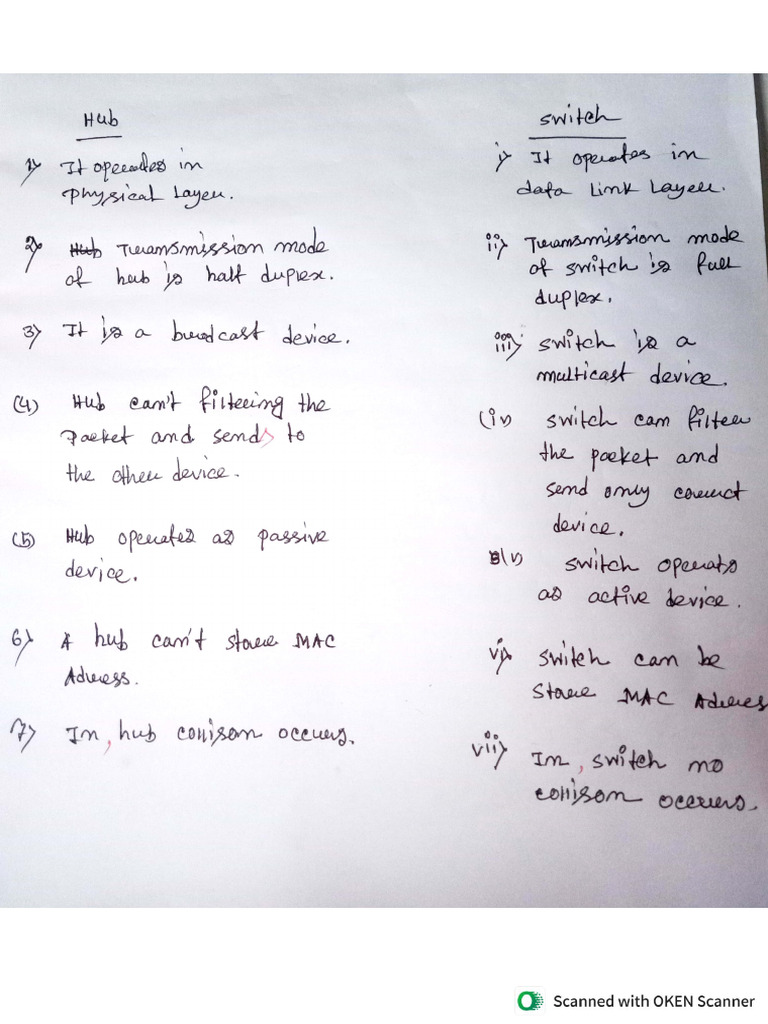 Hub
1) It operates in
Physical Layer.
2) Hub Transmission mode
of hub is half duplex.
3) It is a brodcast device.
(4) Hub can't filtering the
Packet and sends to
the other device.
(5) Hub operates as passive
device.
6) A hub can't store MAC
Adress.
7) In, hub collison occurs.
switch
i) It operates in
data Link Layer.
ii) Transmission mode
of switch is full
duplex.
iii) switch is a
multicast device.
(iv) switch can filter
the packet and
send only correct
device.
(v) switch operats
as active device.
vi) switch can be
store MAC Adress
vii) In, switch no
collison occurs.
Scanned with OKEN Scanner